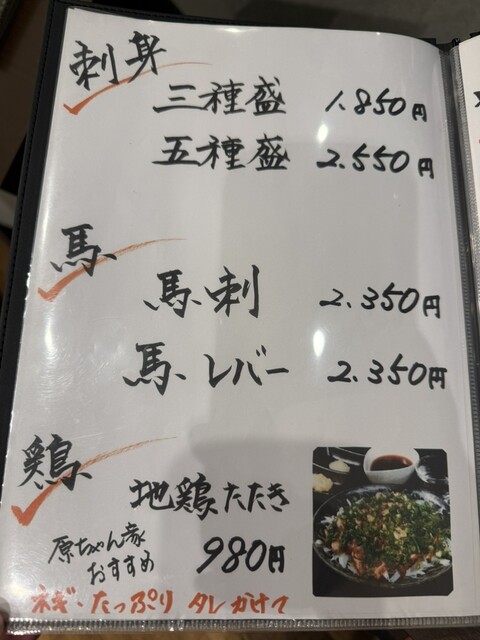 刺身
三種盛 1.850円
五種盛 2.550円
馬
馬刺 2.350円
馬レバー 2.350円
鶏
地鶏たたき
原ちゃん家
おすすめ
980円
ネギ・たっぷり タレかけて